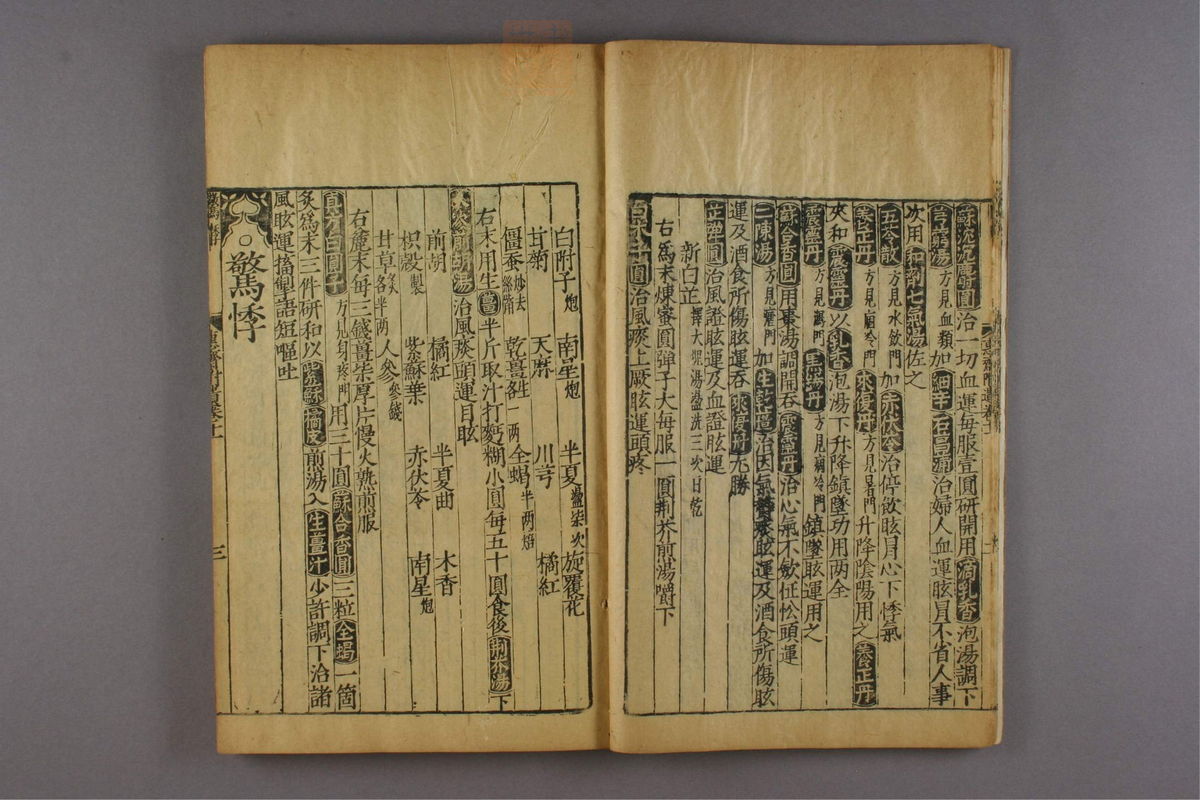 蘇沉沉麝圓治一切血運每服壹圓研開用滴乳香泡湯調下
芎藭湯方見血類加細辛石菖蒲治婦人血運眩冐不省人事
次用和劑七氣湯佐之
五苓散方見水飲門加赤伏苓治停飲眩冐心下悸氣
養正丹方見痼冷門來復丹方見暑門升降陰陽用之養正丹
夾和震靈丹以乳香泡湯下升降鎮墜功用两全
震靈丹方見瀉門黑錫丹方見痼冷門鎮墜眩運用之
蘇合香圓用棗湯調開吞震靈丹治心氣不歛怔忪頭運
二陳湯方見瘧門加生乾薑治因氣鬱痰眩運及酒食所傷眩
運及酒食所傷眩運吞來復丹尤勝
芷彈圓治風證眩運及血證眩運
新白芷擇大塊湯盪洗三次日乾
右爲末煉蜜圓彈子大每服一圓荆芥煎湯嚼下
圓治風痰上厥眩運頭疼
白附子炮 南星炮 半夏盪柒次 旋覆花
甘菊 天麻 川芎 橘紅
僵蚕炒去絲觜 乾薑各生一两 全蝎半两焙
右末用生薑半斤取汁打麪糊小圓每五十圓食後荆芥湯下
前胡湯治風痰頭運目眩
前胡 橘紅 半夏曲 木香
枳殼製 紫蘇葉 赤伏苓 南星炮
甘草炙各半两 人參參錢
右麄末每三錢薑柒厚片慢火熟煎服
真方白圓子方見身疼門用三十圓蘇合香圓三粒全蝎一箇
炙爲末三件研和以紫蘇橘皮煎湯入生薑汁少許調下治諸
風眩運搐製語短嘔吐
驚悸
三